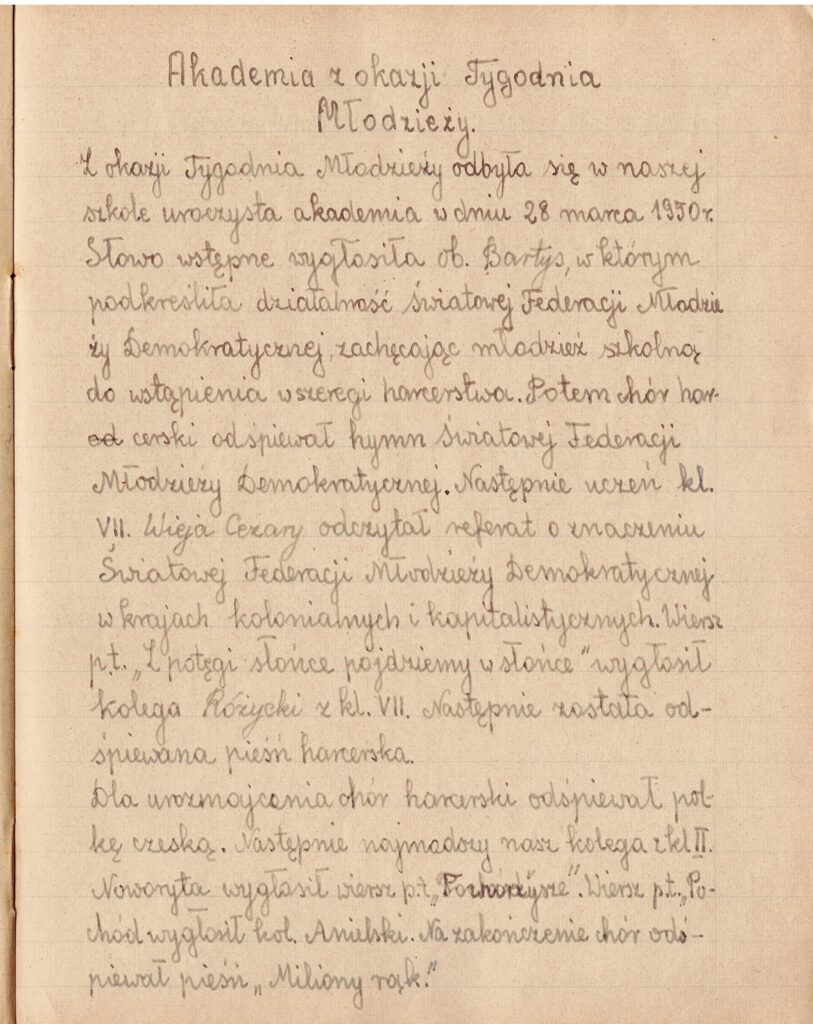 Akademia z okazji Tygodnia
Młodzieży.
Z okazji Tygodnia Młodzieży odbyła się w naszej
szkole uroczysta akademia w dniu 28 marca 1950r.
Słowo wstępne wygłosiła ob. Bartys, w którym
podkreśliła działalność Światowej Federacji Młodzie
ży Demokratycznej, zachęcając młodzież szkolną
do wstąpienia w szeregi harcerstwa. Potem chór har-
cerski odśpiewał hymn Światowej Federacji
Młodzieży Demokratycznej. Następnie uczeń kl.
VII. Wieja Cezary odczytał referat o znaczeniu
Światowej Federacji Młodzieży Demokratycznej
w krajach kolonialnych i kapitalistycznych. Wiersz
p.t. „Z potęgi słońce pójdziemy w słońce" wygłosił
kolega Różycki z kl. VII. Następnie została od-
śpiewana pieśń harcerska.
Dla urozmajcenia chór harcerski odśpiewał pol-
kę czeską. Następnie najmłodszy nasz kolega z kl II.
Noworyta wygłosił wiersz p.t. „ ". Wiersz p.t. „Po-
chód wygłosił kol. Anielski. Na zakończenie chór odś-
piewał pieśń „Miliony rąk."